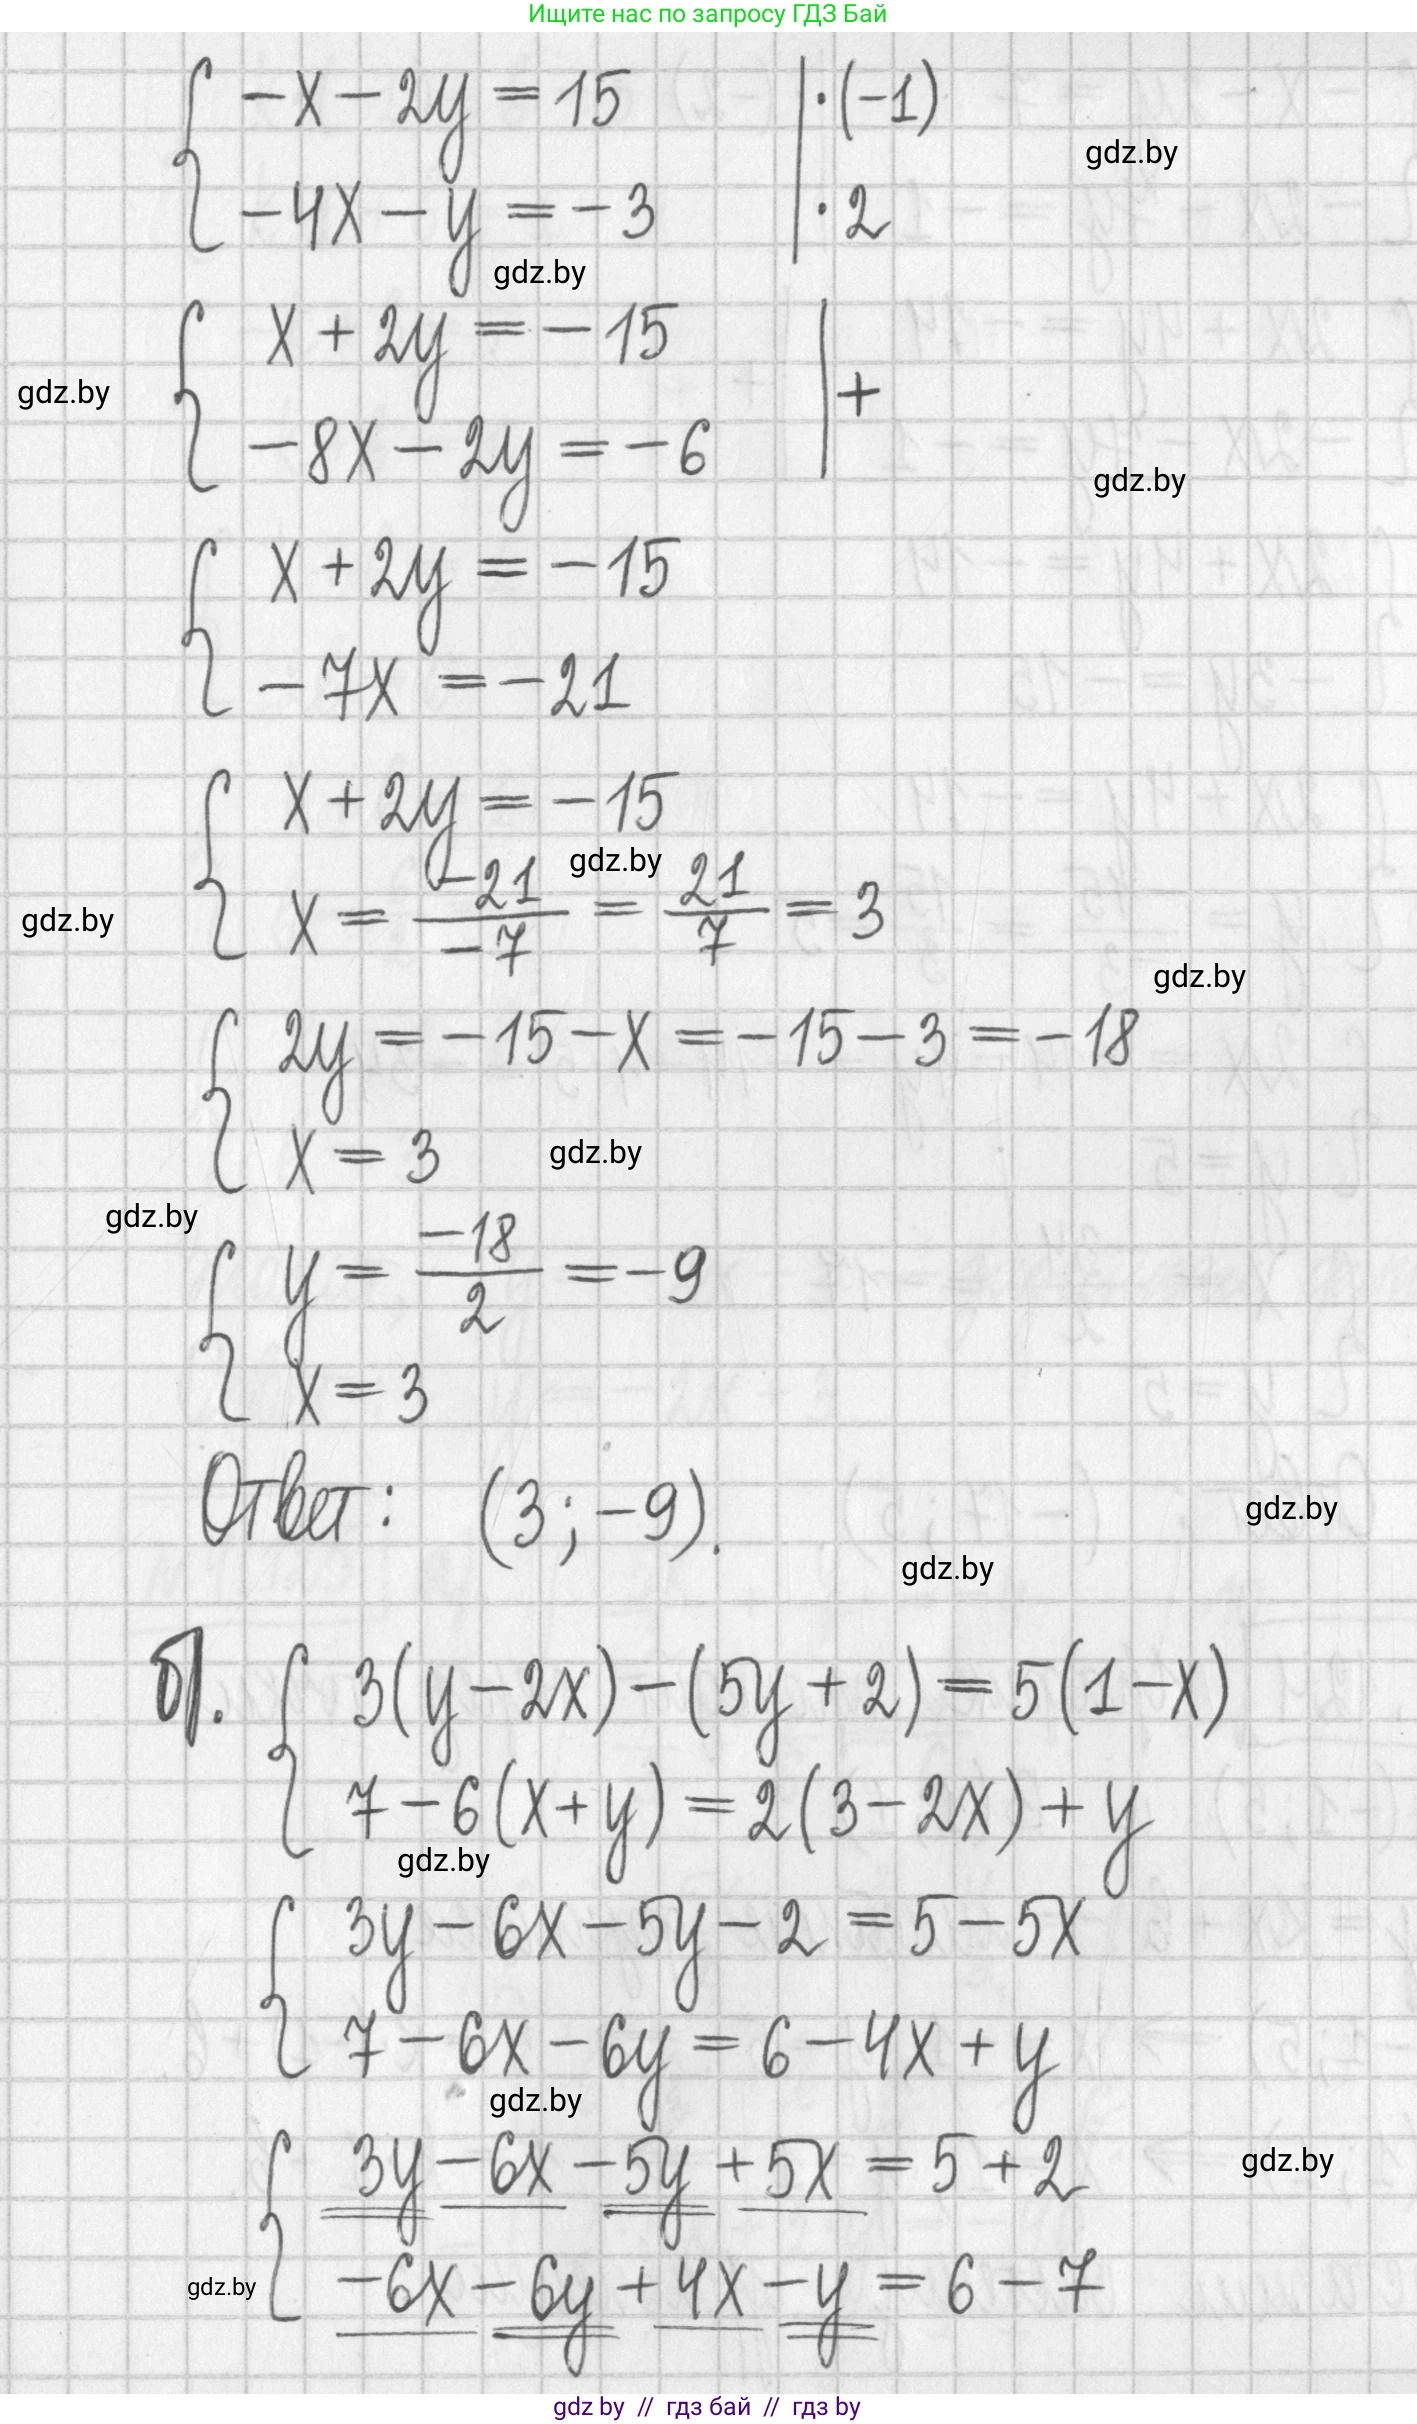 Ищите нас по запросу ГДЗ Бай
-x - 2y = 15 | · (-1)
gdz.by
-4x - y = -3 | · 2
gdz.by
x + 2y = -15
gdz.by
| +
-8x - 2y = -6
gdz.by
x + 2y = -15
-7x = -21
x + 2y = -15
gdz.by
x = -21/-7 = 21/7 = 3
gdz.by
gdz.by
2y = -15 - x = -15 - 3 = -18
x = 3
gdz.by
gdz.by
y = -18/2 = -9
x = 3
Ответ: (3; -9).
gdz.by
gdz.by
б). 3(y - 2x) - (5y + 2) = 5(1 - x)
7 - 6(x + y) = 2(3 - 2x) + y
gdz.by
3y - 6x - 5y - 2 = 5 - 5x
7 - 6x - 6y = 6 - 4x + y
gdz.by
3y - 6x - 5y + 5x = 5 + 2
gdz.by
-6x - 6y + 4x - y = 6 - 7
gdz.by
gdz by // гдз бай // гдз by